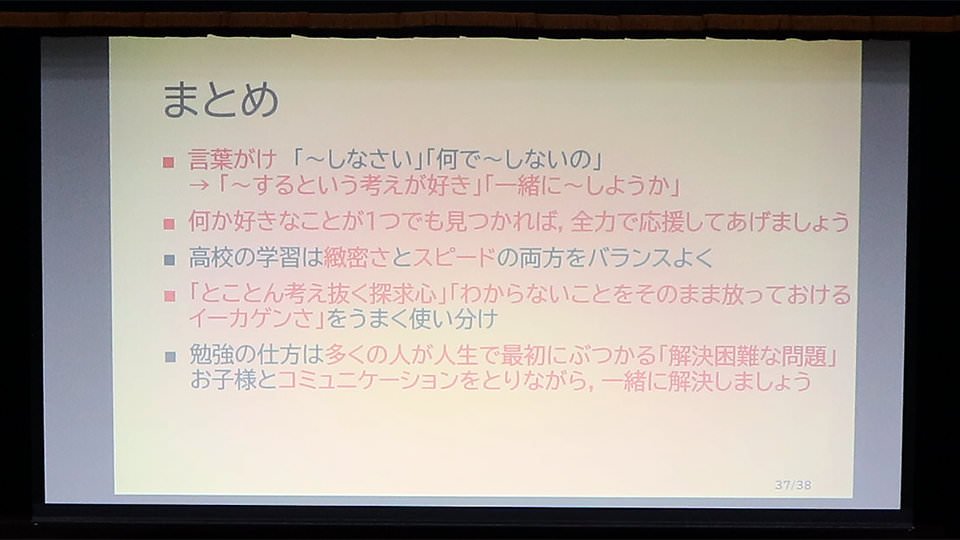 まとめ
■ 言葉がけ 「～しなさい」「何で～しないの」
→ 「～するという考えが好き」「一緒に～しようか」
■ 何か好きなことが1つでも見つかれば, 全力で応援してあげましょう
■ 高校の学習は緻密さとスピードの両方をバランスよく
■ 「とことん考え抜く探求心」「わからないことをそのまま放っておける
イーカゲンさ」をうまく使い分け
■ 勉強の仕方は多くの人が人生で最初にぶつかる「解決困難な問題」
お子様とコミュニケーションをとりながら, 一緒に解決しましょう
37/38